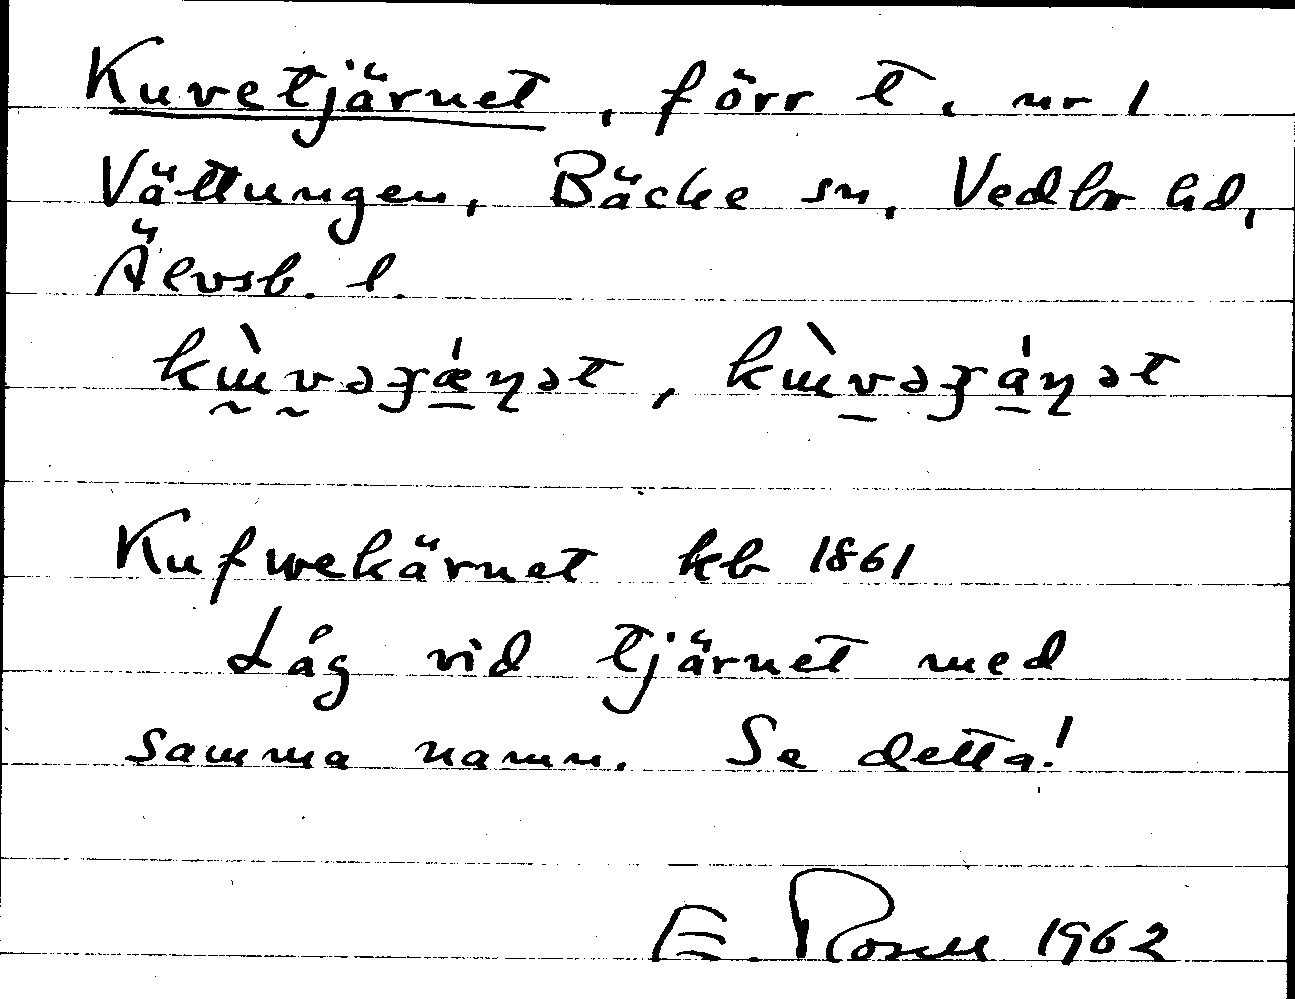 Kuvetjärnet, förr t. nr 1
Vättungen, Bäcke sn, Vedbo hd,
Älvsb. l.
Kufwekärnet kb 1861
Låg vid tjärnet med
samma namn. Se detta!
E. Rosell 1962